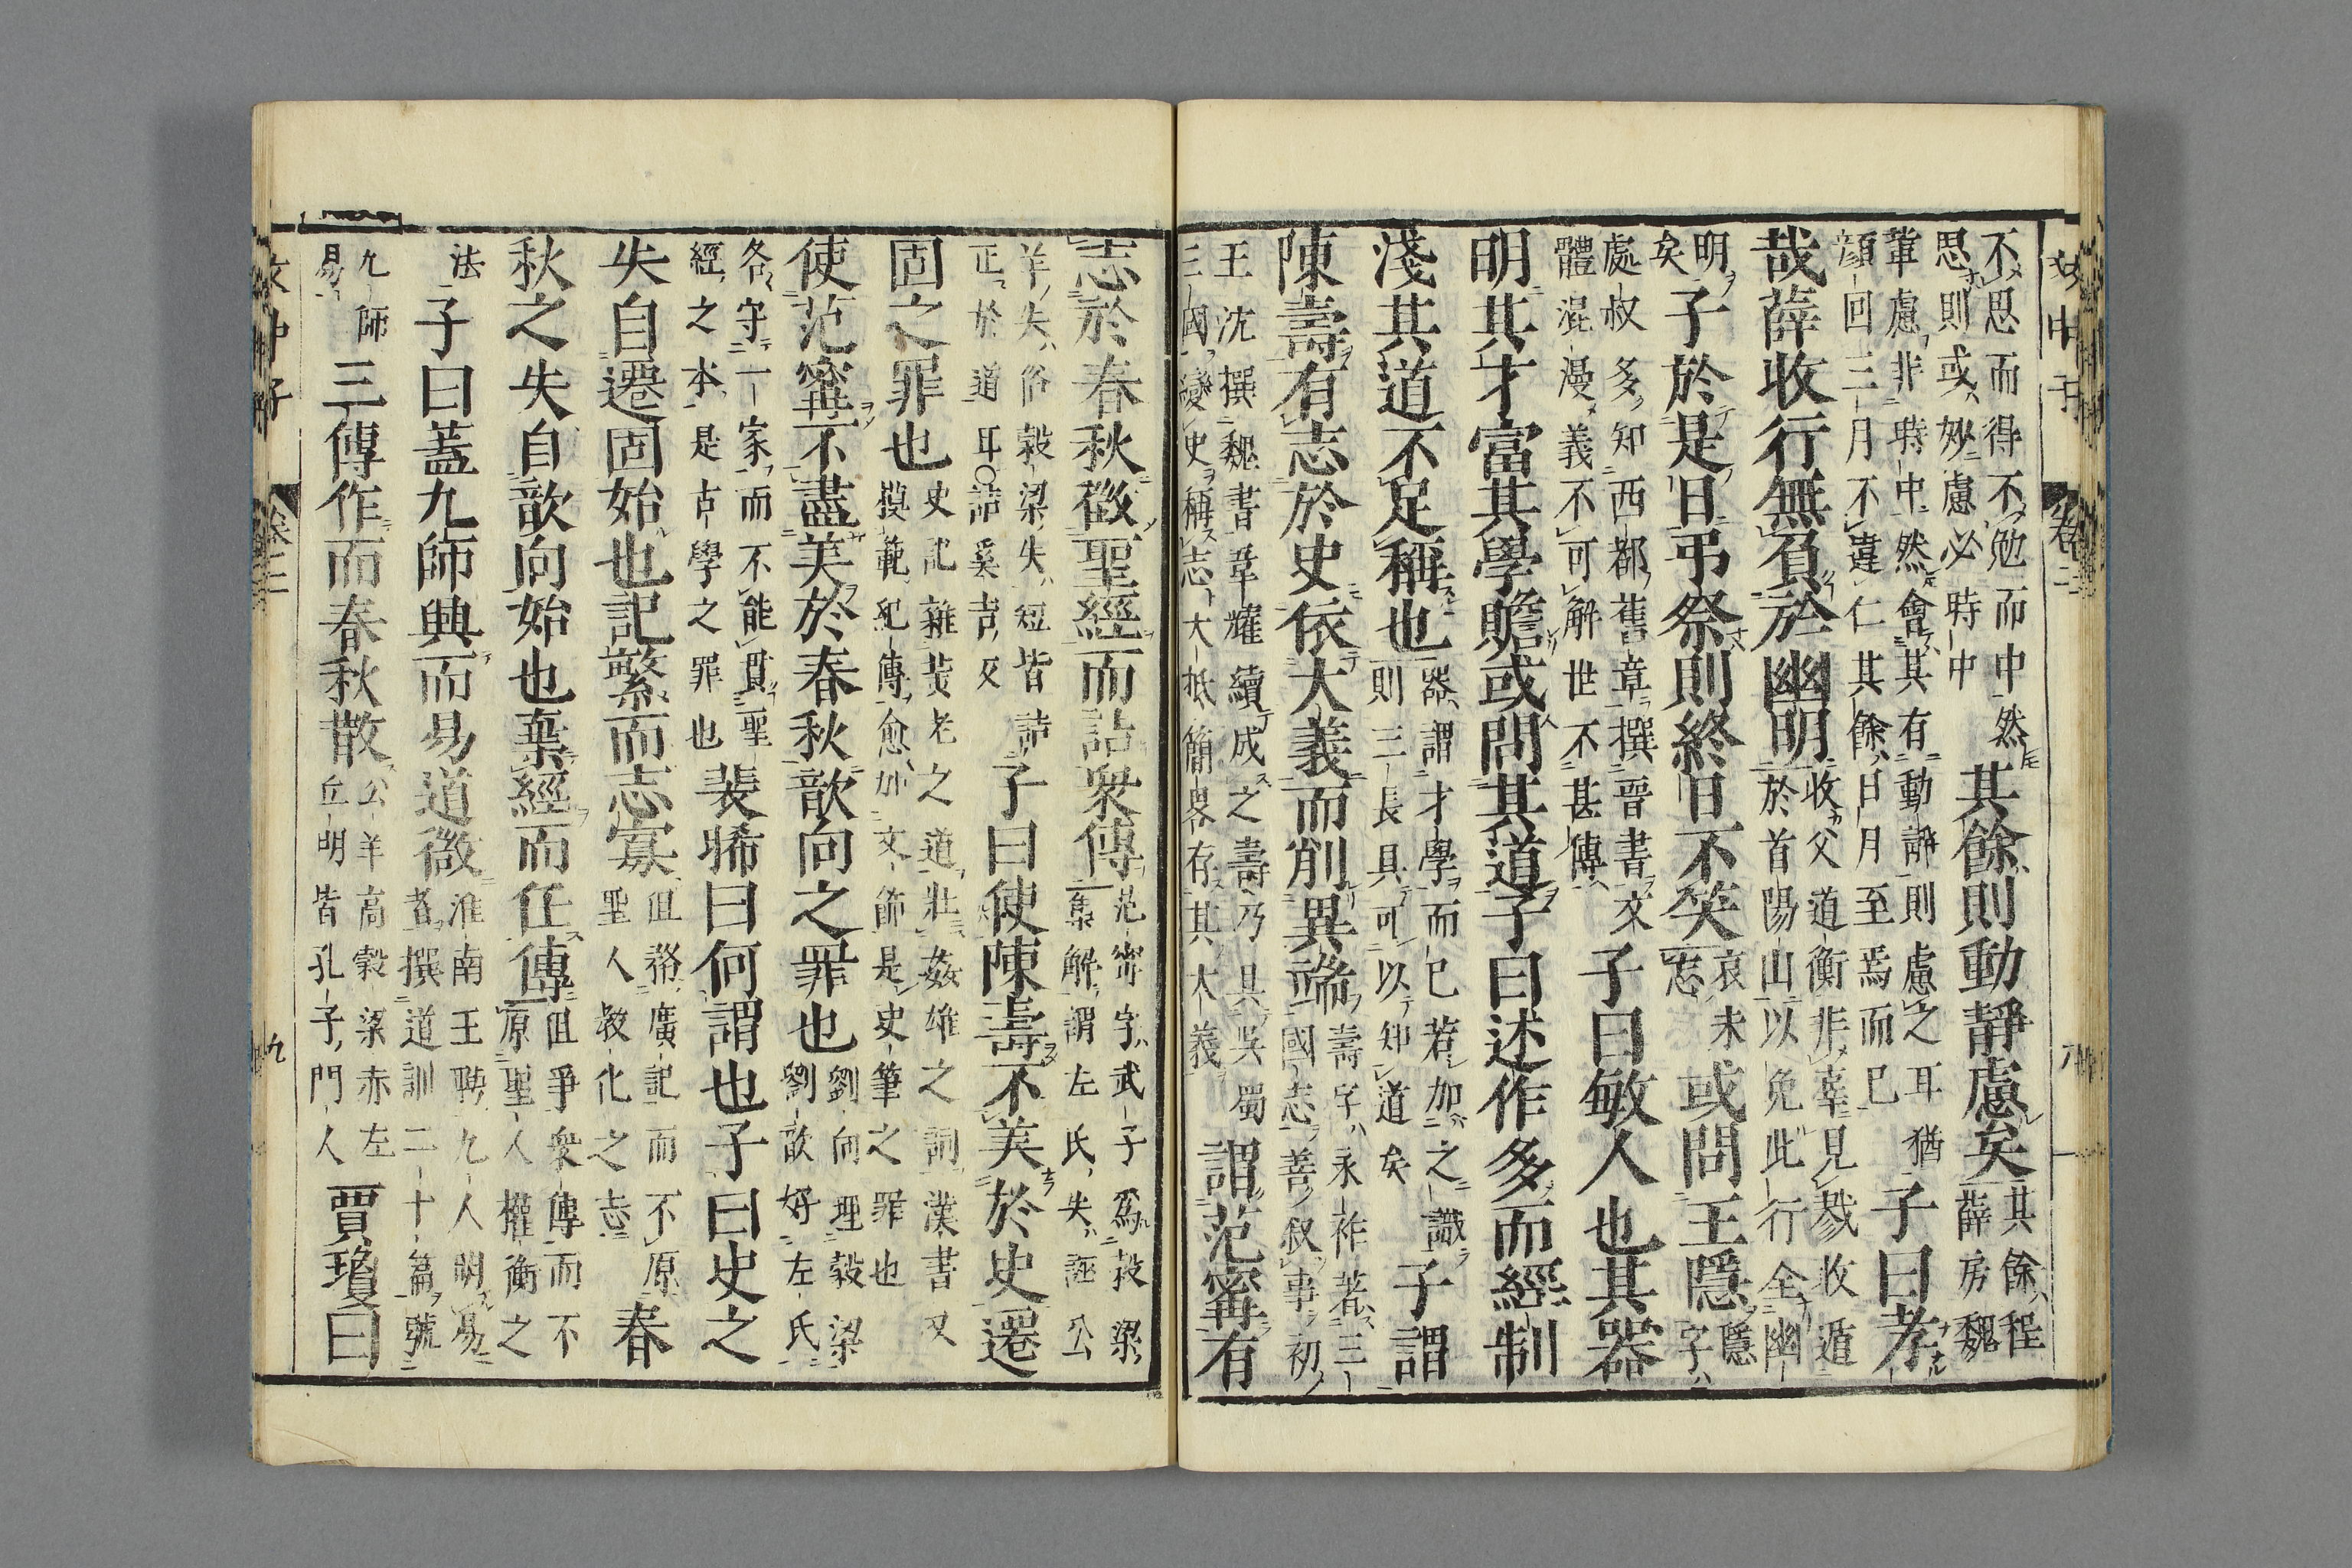 文中子 卷二 八
不思而得不勉而中然思則或妙慮必時中其餘則動靜慮矣其餘程薛房魏
輩慮非時中然會其有動靜則慮之耳猶顔回三月不違仁其餘日月至焉而已子曰孝
哉薛收行無負於幽明收父道衡非辜見戮收遁於首陽山以免此行全幽
明矣子於是日弔祭則終日不笑哀未忘或問王隱隱字
處叔多知西都舊章撰晋書文體混漫義不可解世不甚傳子曰敏人也其器
明其才富其學贍或問其道子曰述作多而經制
淺其道不足稱也器謂才學而已若加之識則三長具可以知道矣子謂
陳壽有志於史依大義而削異端壽字永祚著三國志善叙事初
王沈撰魏書韋耀續成之壽乃具吳蜀三國變史稱志大抵簡畧存其大義謂范甯有
志於春秋徵聖經而詰衆傳范甯字武子爲穀梁集解謂左氏失誣公
羊失俗穀梁失短皆詰正於道耳○詰奚吉反子曰使陳壽不美於史遷
固之罪也史記雜黄老之道壯姦雄之詞漢書又模範紀傳愈加文節是史筆之罪也
使范甯不盡美於春秋歆向之罪也劉向理穀梁劉歆好左氏
各守一家而不能貫聖經之本是古學之罪也裴晞曰何謂也子曰史之
失自遷固始也記繁而志寡但務廣記而不原聖人敎化之志春
秋之失自歆向始也棄經而任傳但爭衆傳而不原聖人權衡之
法子曰蓋九師興而易道微淮南王聘九人明易者撰道訓二十篇號
九師易三傳作而春秋散公羊高穀梁赤左丘明皆孔子門人賈瓊曰
文中子 卷二 九